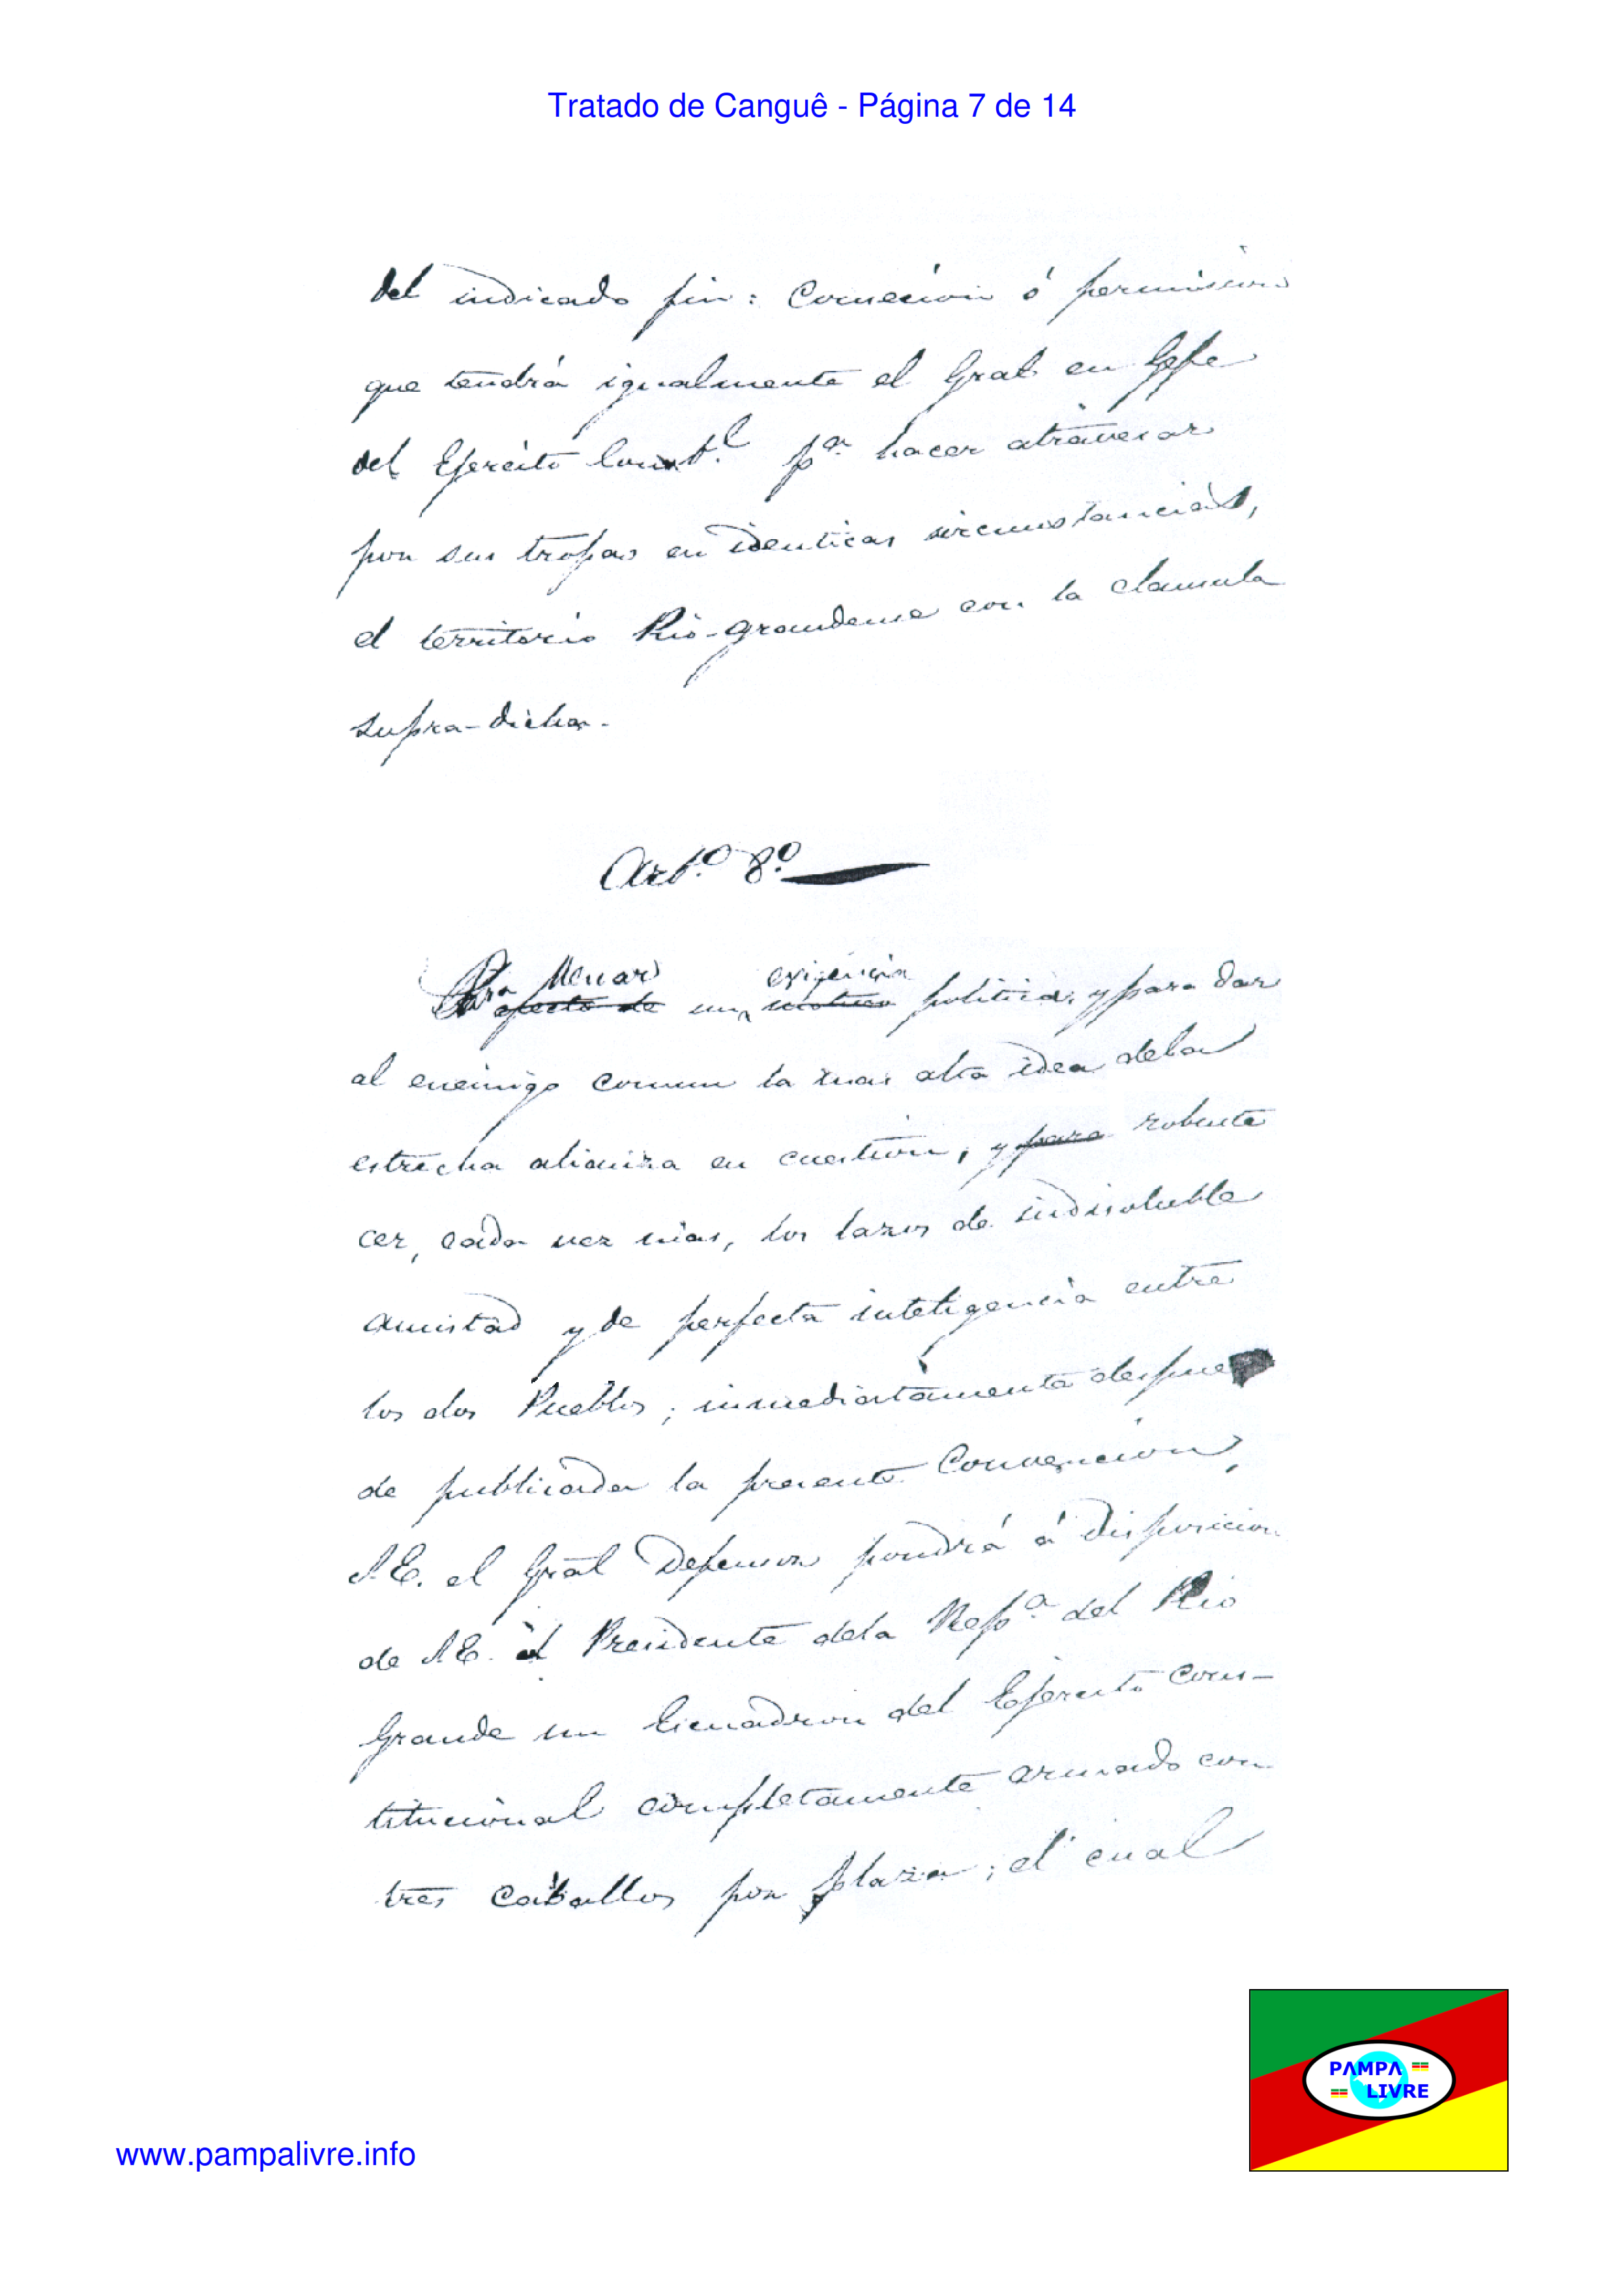 Tratado de Canguê - Página 7 de 14
del indicado fin: Conección ó permision
que tendrá igualmente el Gral en Gefe
del Ejercito Const.l p.a hacer atravesar
por sus tropas en identicas circunstancias,
el territorio Rio-grandense con la clausula
supra-dicha.
Art.o 8.o
Para llenar exigencia
efecto de una motivo politica, y para dar
al enemigo comun la mas alta idea dela
estrecha alianza en cuestion, y para robuste
cer, cada vez mas, los lazos de indisoluble
amistad y de perfecta inteligencia entre
los dos Pueblos; inmediatamente despues
de publicada la presente Convencion,
S.E. el Gral Defensor pondrá á disposicion
de S.E. el Presidente dela Rep.a del Rio
Grande un Escuadron del Ejercito Cons-
titucional completamente armado con
tres caballos por plaza; el cual
PAMPA
LIVRE
www.pampalivre.info